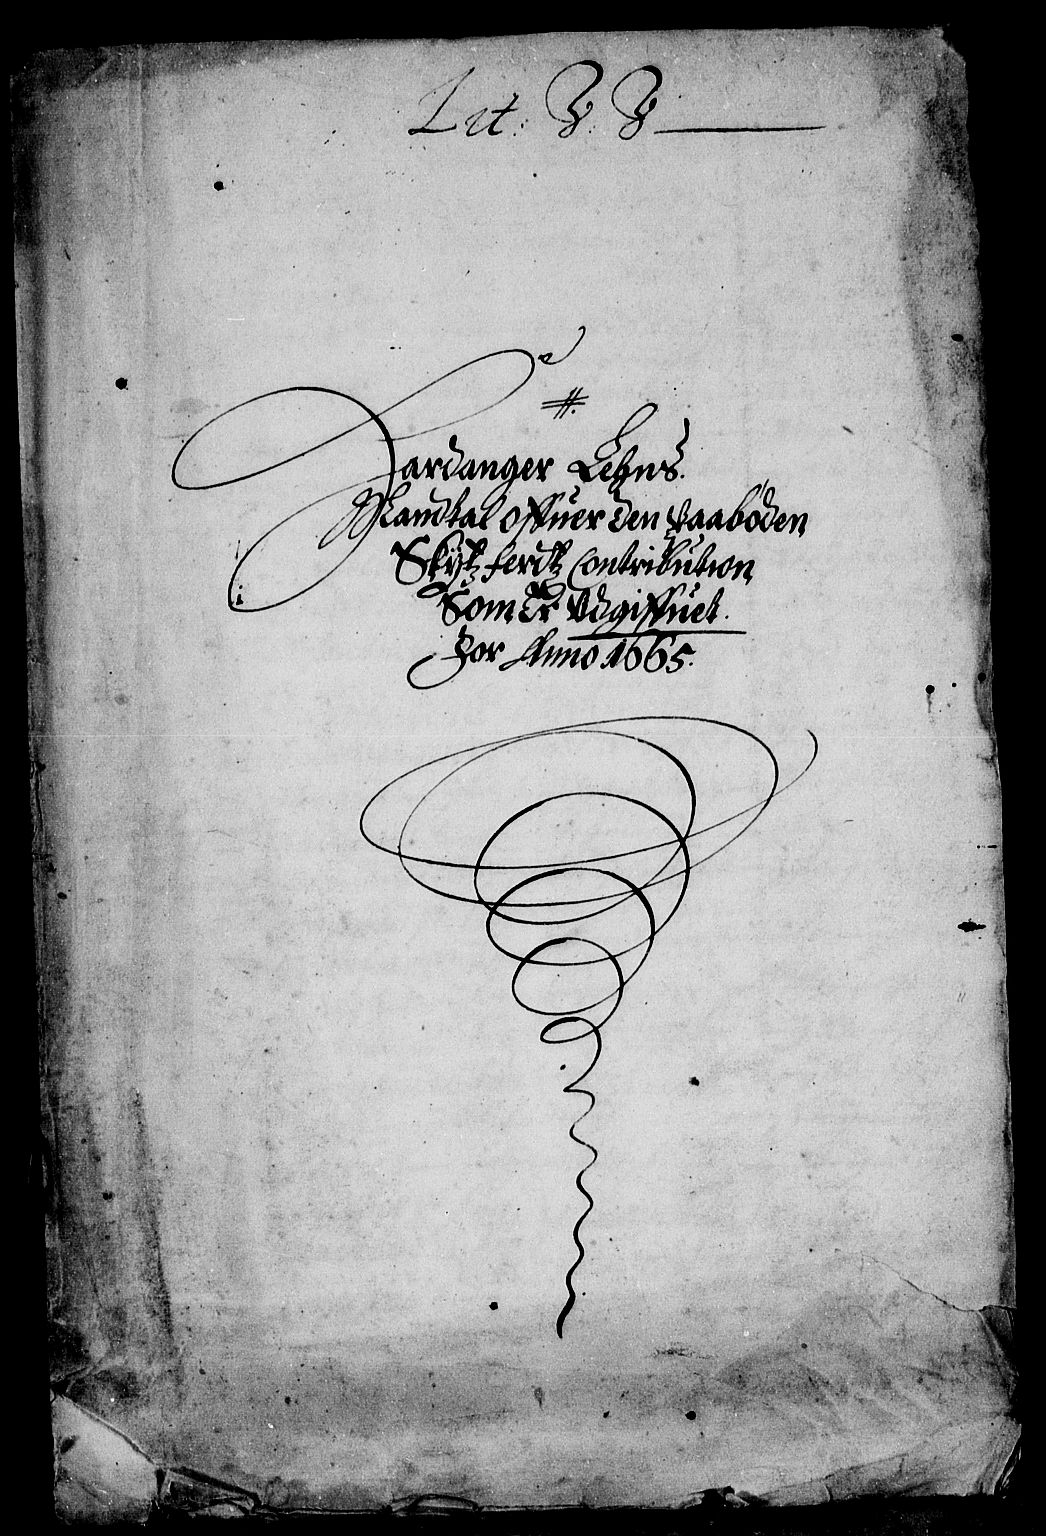 Lit:
Hardanger Lehns.
Mandtal offuer den paabøden
Skytz ferdtz Contribution
Som Er Vdgiffuet.
For Anno 1665.